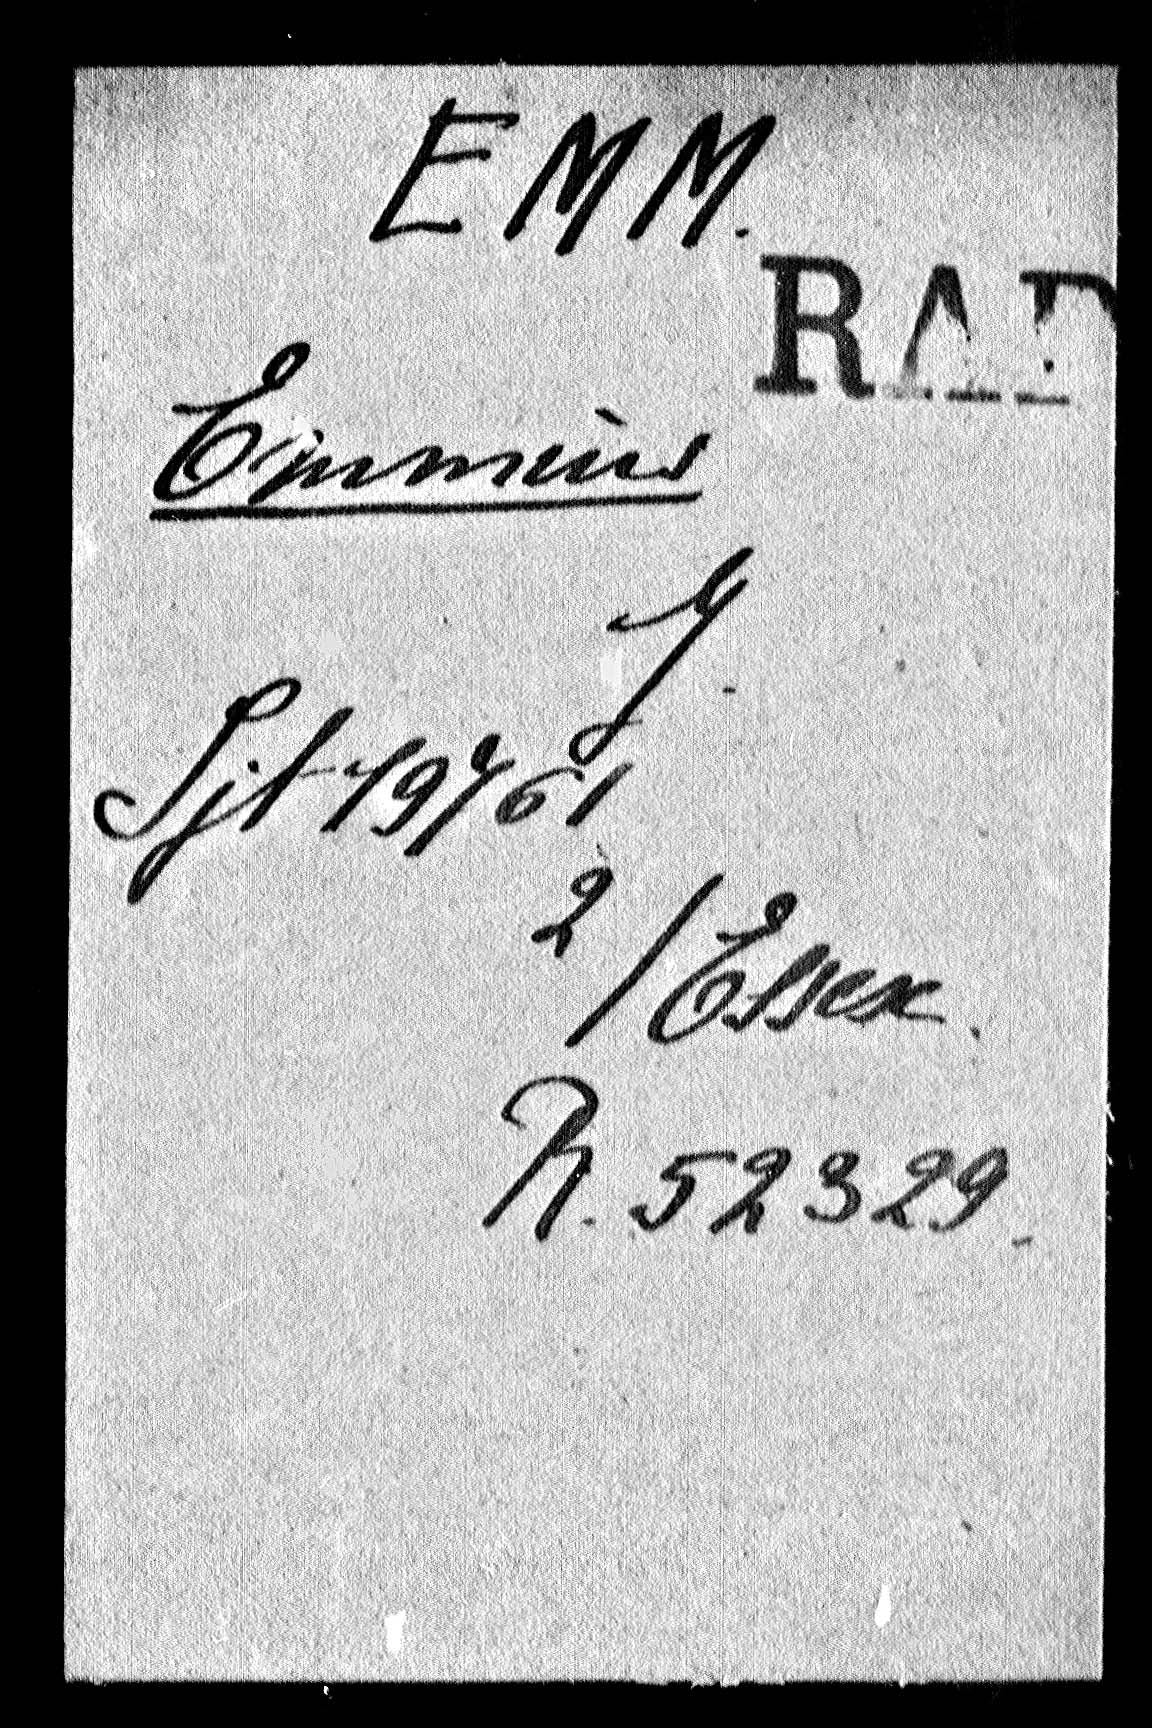 EMM.
RAP
Emmins
J.
Sjt 19761
2/Essex.
R. 52329.